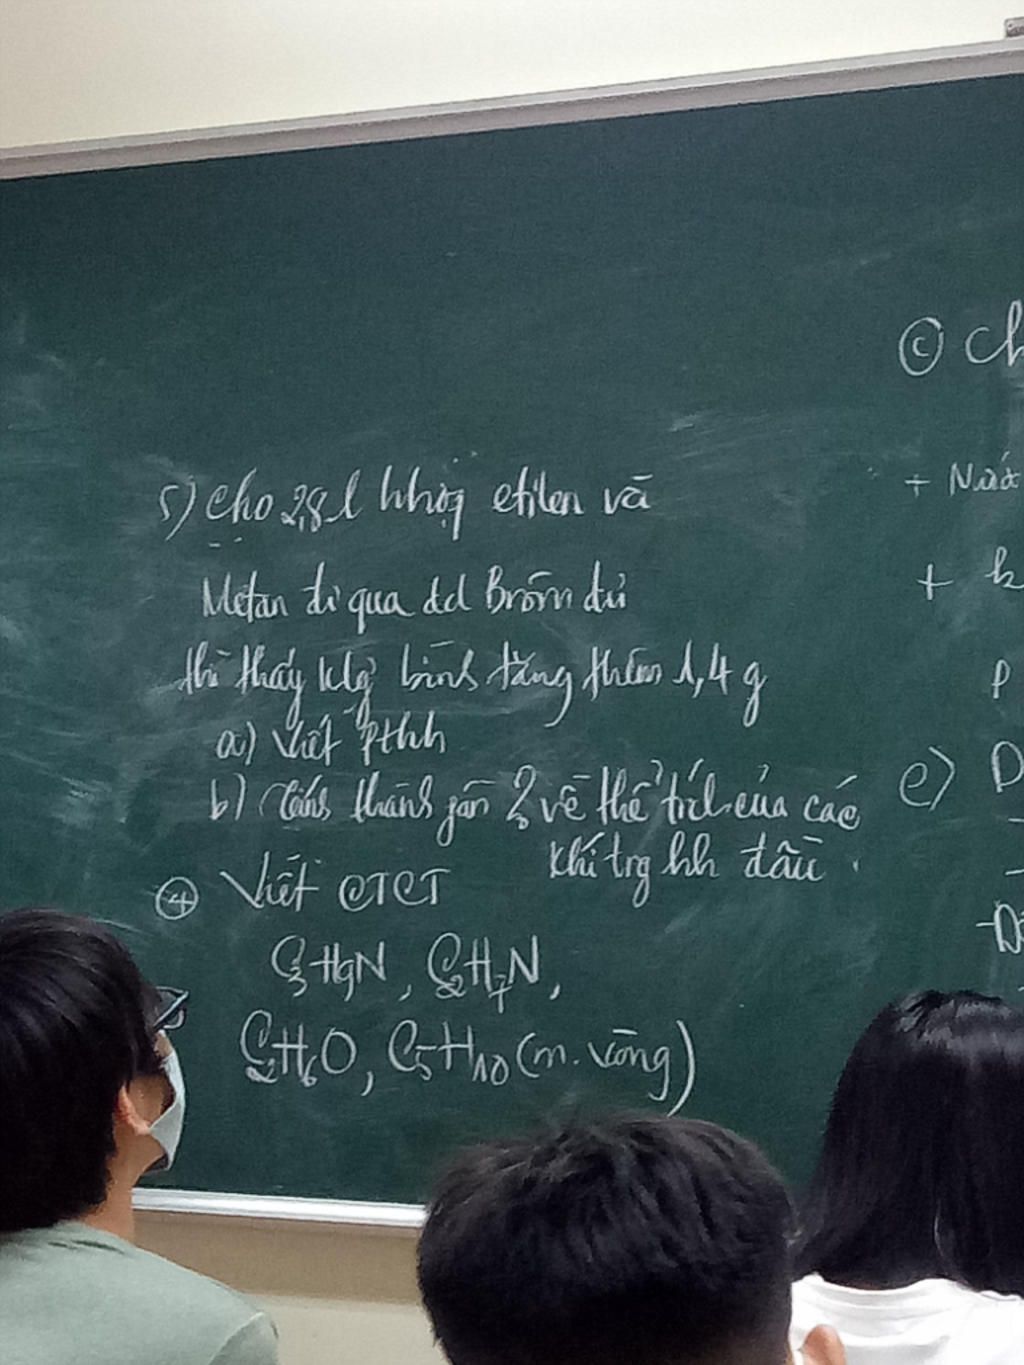 5) Cho 2,8 l hhợp etilen và
Metan đi qua dd Brôm dư
thì thấy klg bình tăng thêm 1,4 g
a) Viết Pthh
b) Tính thành phần % về thể tích của các
khí trg hh đầu.
④ Viết CTCT
C3H9N, C2H7N,
C2H6O, C5H10 (m. vòng)
ⓒ Ch
+ Nướ
+ k
P
e) D
-Đ